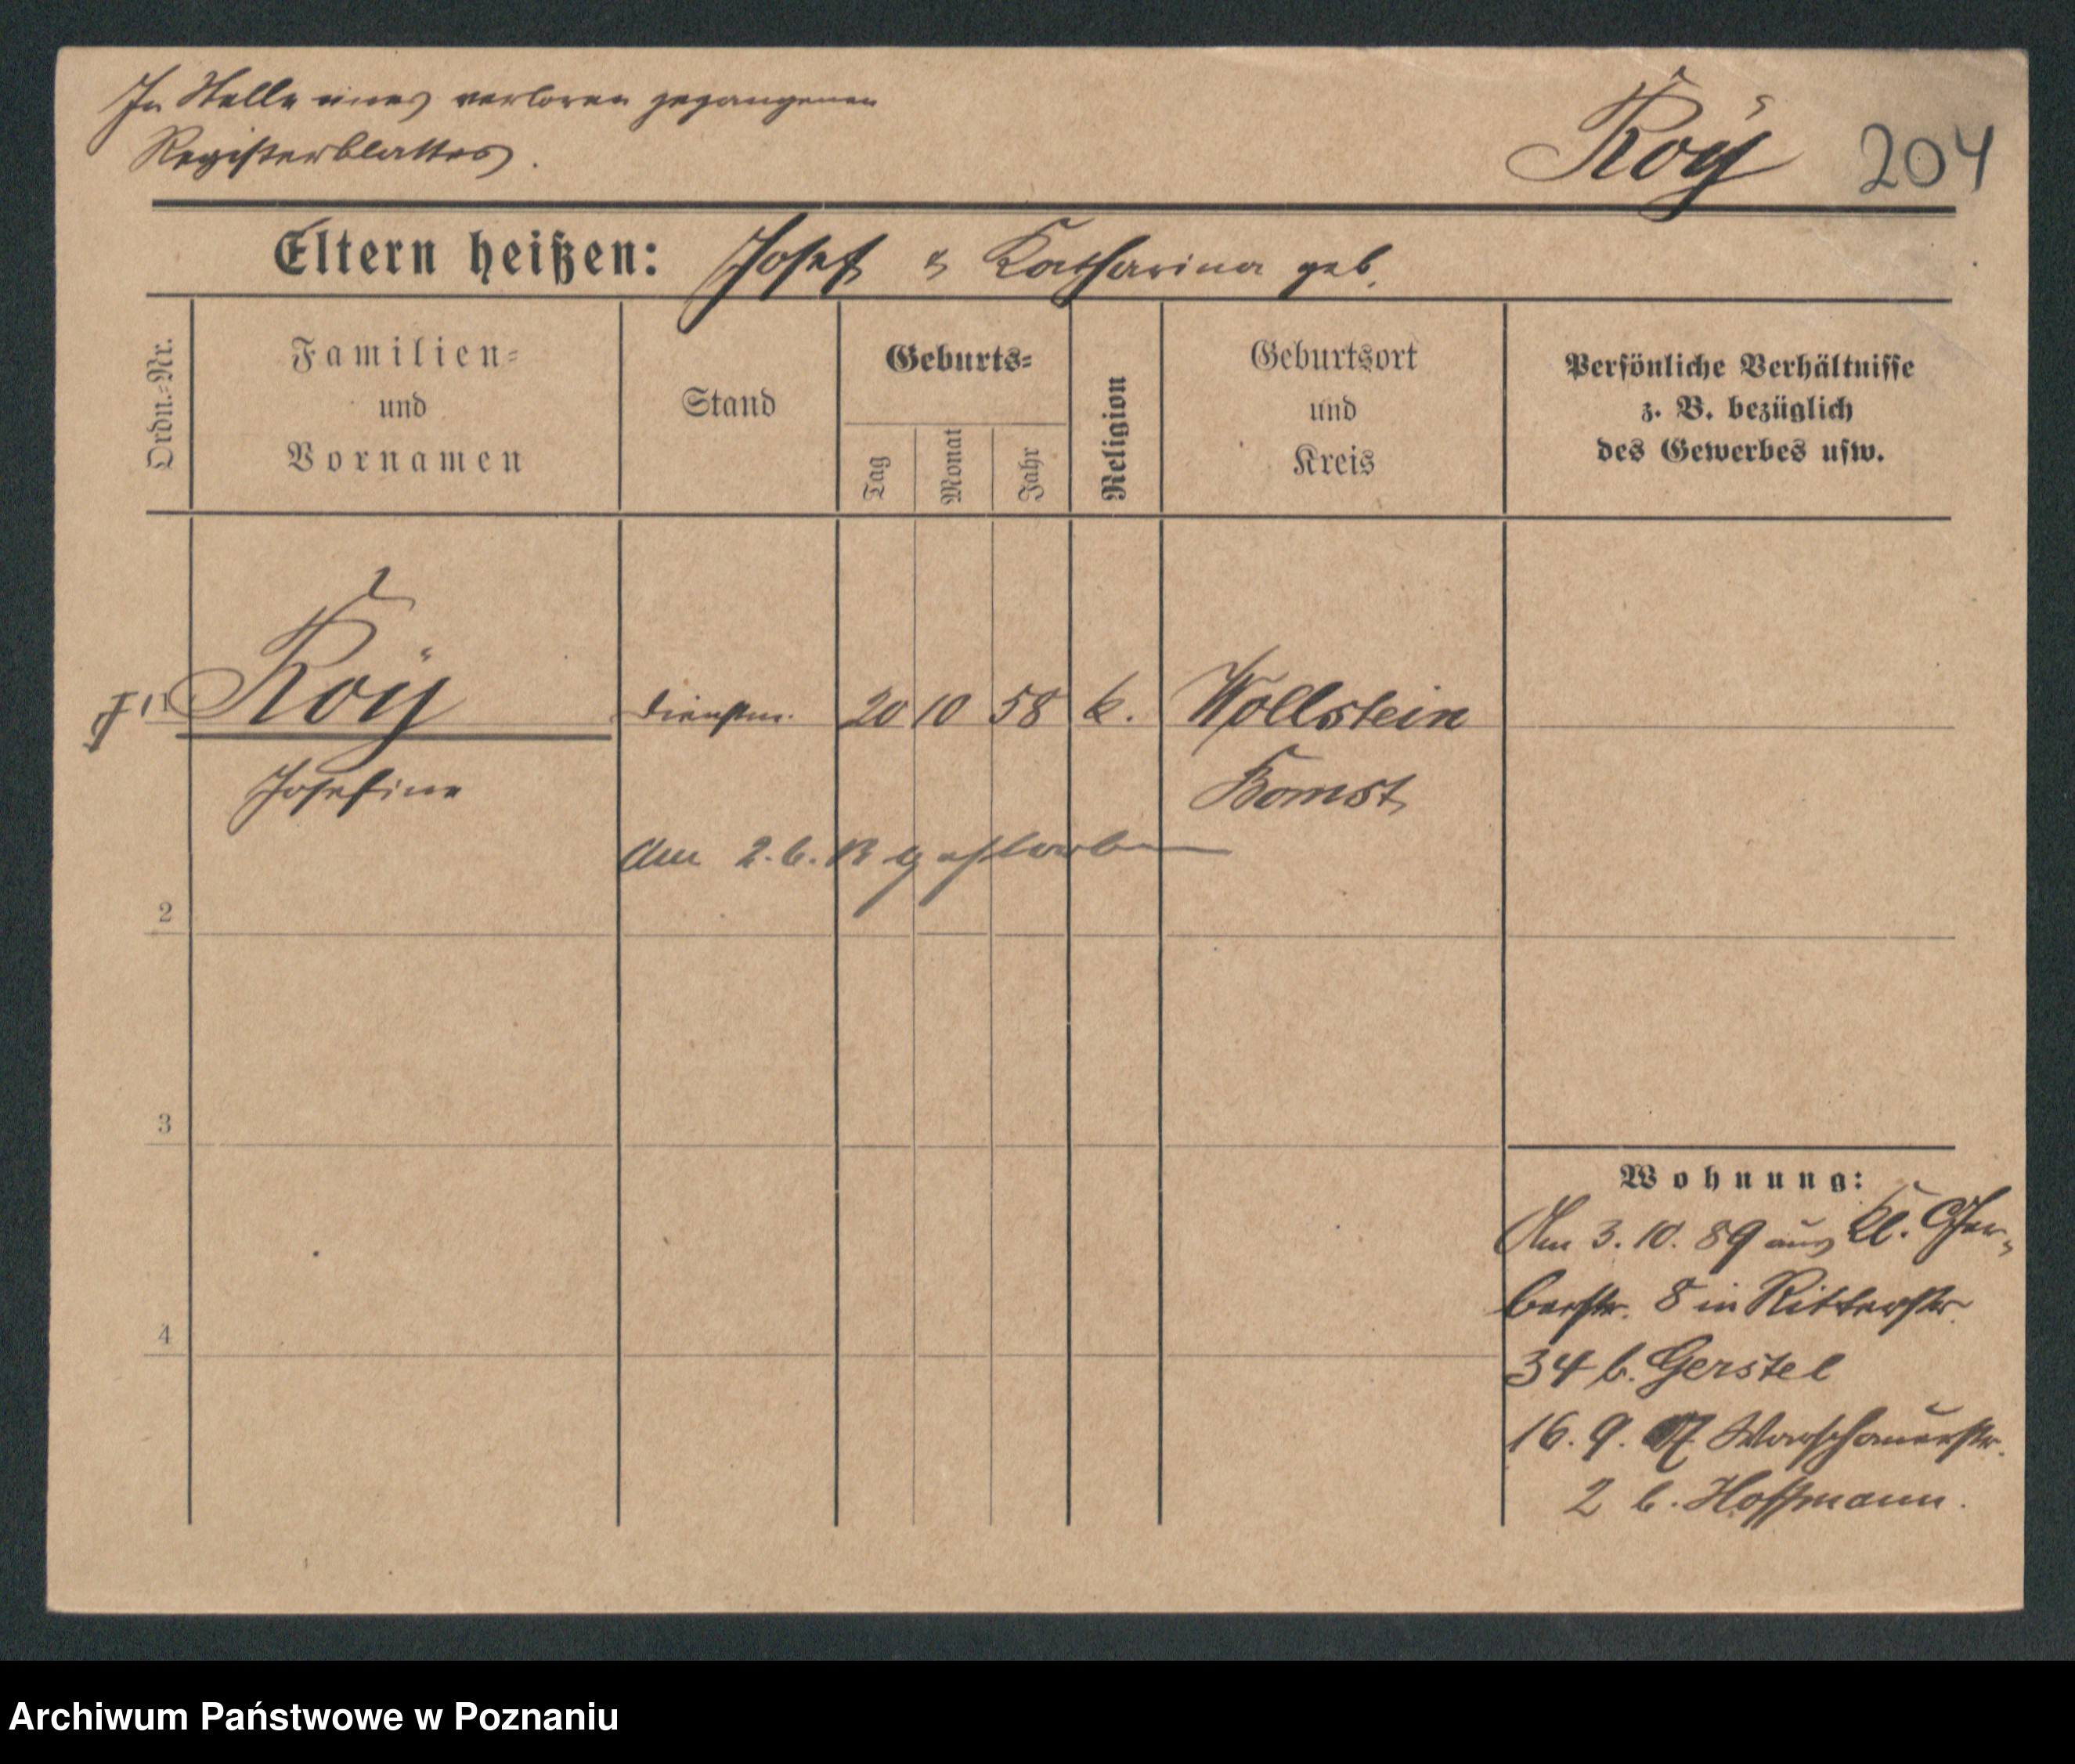 In Stelle eines verloren gegangenen
Registerblattes.
Roÿ 204
Eltern heißen: Josef & Katharina geb.
Ordn.-Nr.
Familien-
und
Vornamen
Stand
Geburts-
Tag
Monat
Jahr
Religion
Geburtsort
und
Kreis
Persönliche Verhältnisse
z. B. bezüglich
des Gewerbes usw.
1 Roÿ Dienstm. 20 10 58 k. Wollstein
Josefine Bomst
Am 2.6.13 gestorben
2
3
4
Wohnung:
Am 3. 10. 89 aus Kl. Ger-
berstr. 8 in Ritterstr.
34 b. Gerstel
16. 9. 07 Warschauerstr.
2 b. Hoffmann.
Archiwum Państwowe w Poznaniu